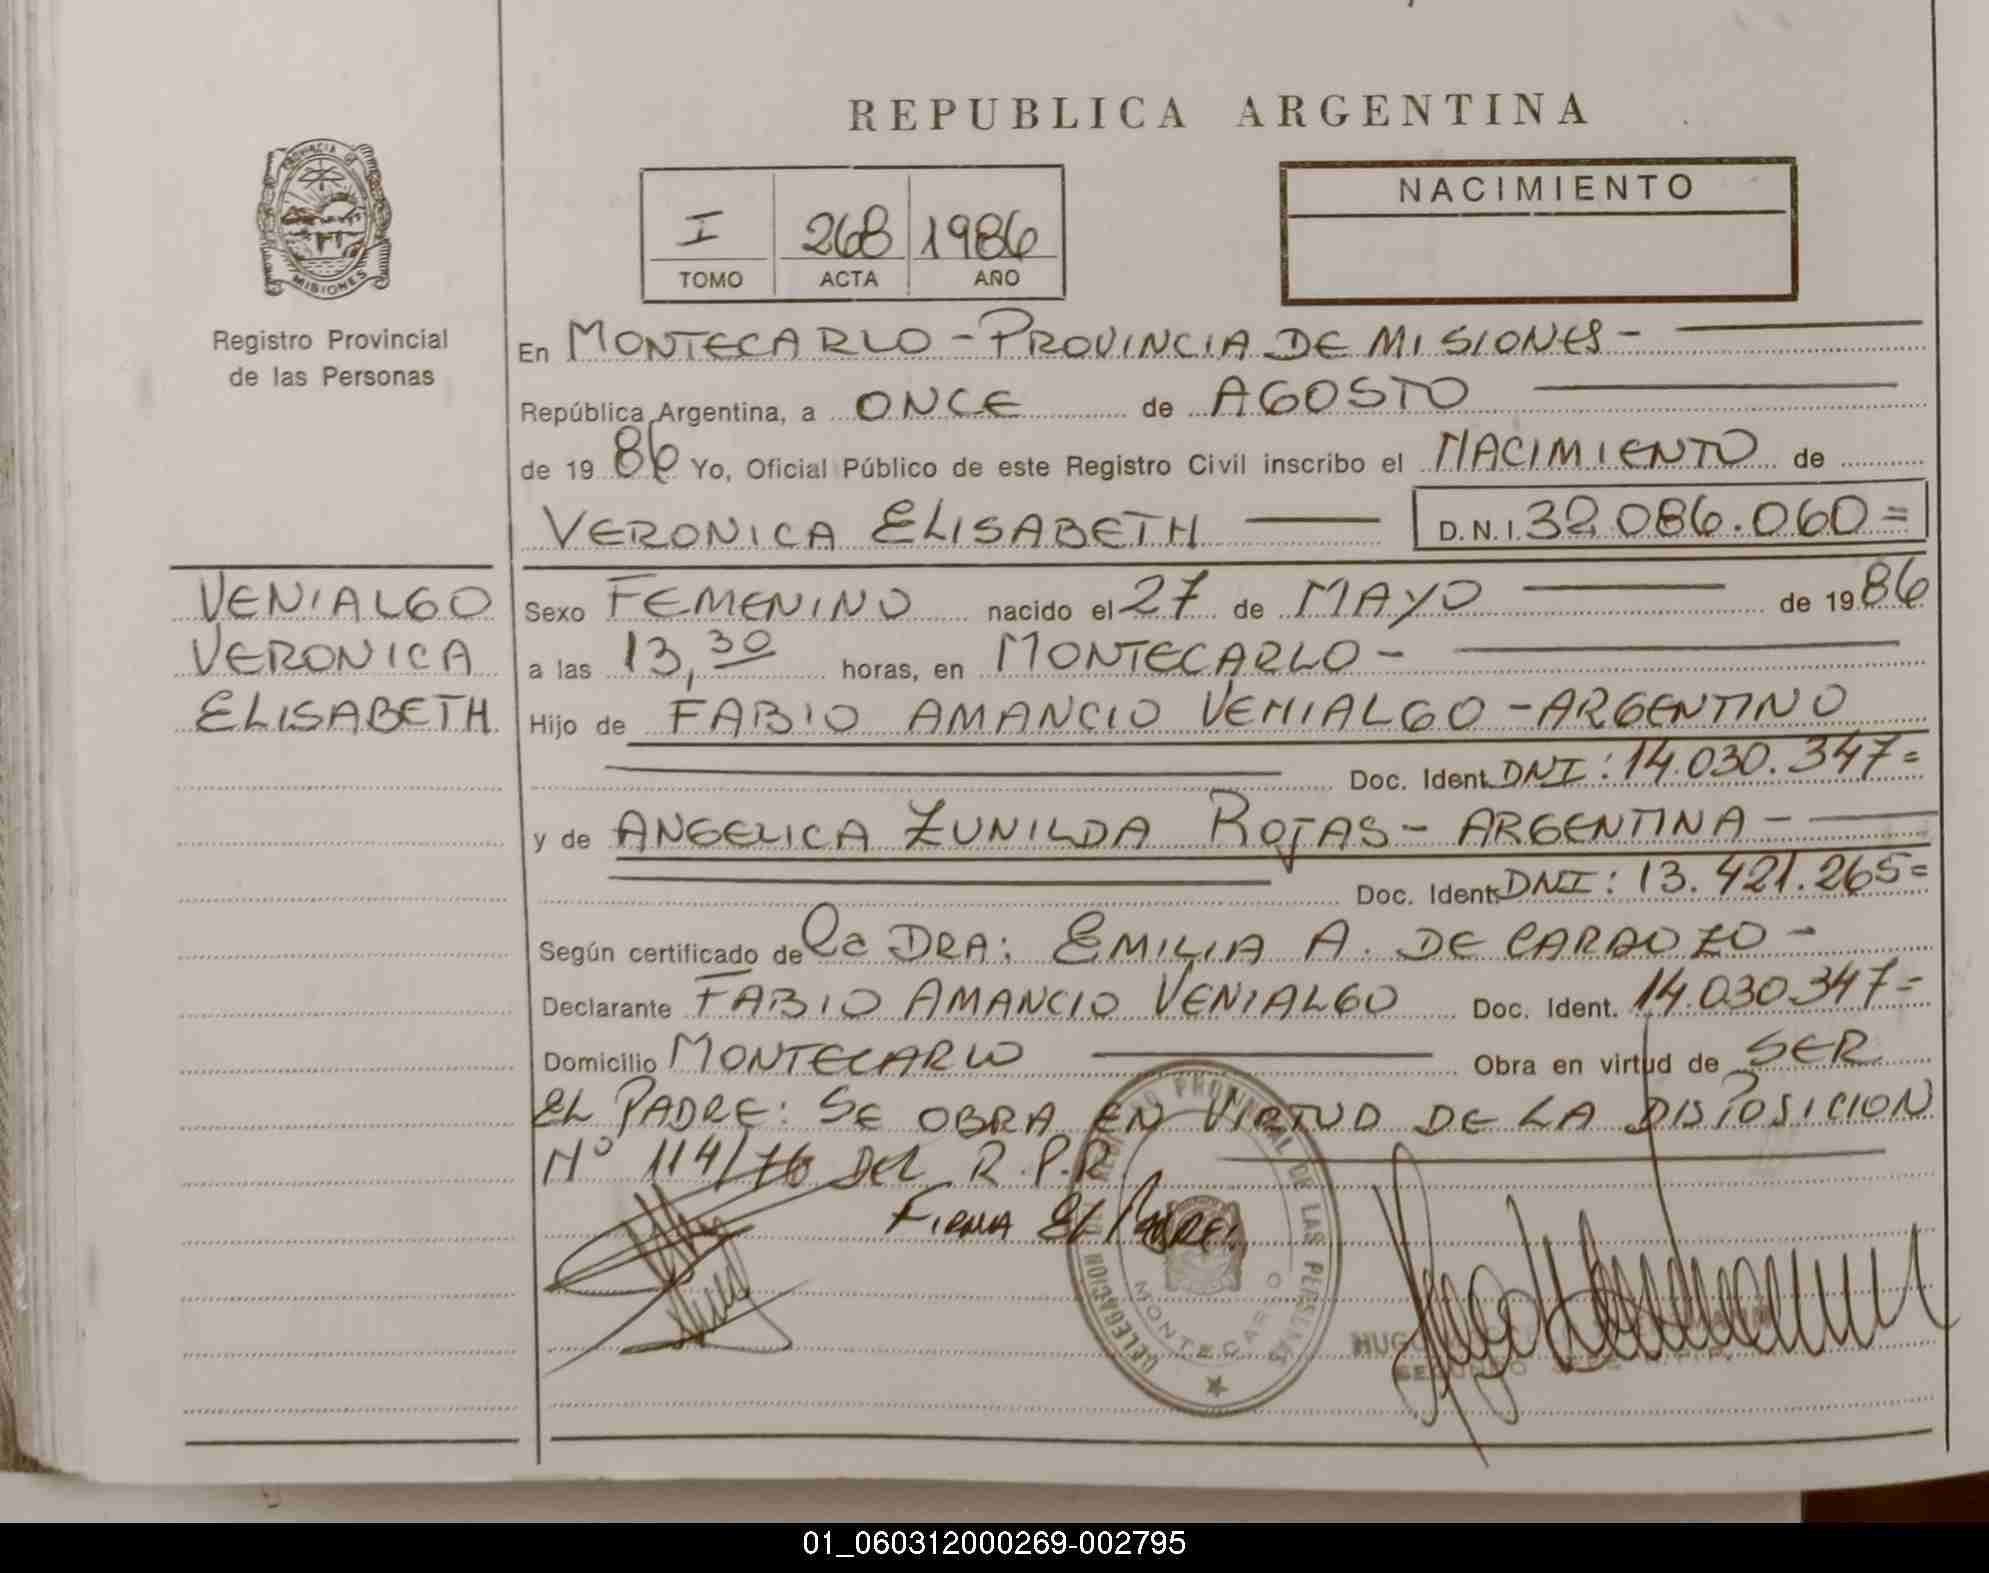 REPUBLICA ARGENTINA
PROVINCIA DE MISIONES
Registro Provincial
de las Personas
I 268 1986
TOMO ACTA AÑO
NACIMIENTO
En MONTECARLO - PROVINCIA DE MISIONES -
República Argentina, a ONCE de AGOSTO
de 19 86 Yo, Oficial Público de este Registro Civil inscribo el NACIMIENTO de
VERONICA ELISABETH D.N.I. 32.086.060=
VENIALGO
VERONICA
ELISABETH
Sexo FEMENINO nacido el 27 de MAYO de 19 86
a las 13,30 horas, en MONTECARLO -
Hijo de FABIO AMANCIO VENIALGO - ARGENTINO
Doc. Ident. DNI: 14.030.347=
y de ANGELICA ZUNILDA ROJAS - ARGENTINA -
Doc. Ident. DNI: 13.421.265=
Según certificado de la DRA: EMILIA A. DE CARDOZO -
Declarante FABIO AMANCIO VENIALGO Doc. Ident. 14.030.347=
Domicilio MONTECARLO Obra en virtud de SER
EL PADRE: SE OBRA EN VIRTUD DE LA DISPOSICION
Nº 114/76 DEL R.P.R.
FIRMA EL PADRE.
PROVINCIAL DE LAS PERSONAS
DELEGACION
MONTECARLO
HUGO
SEGUNDO
01_060312000269-002795